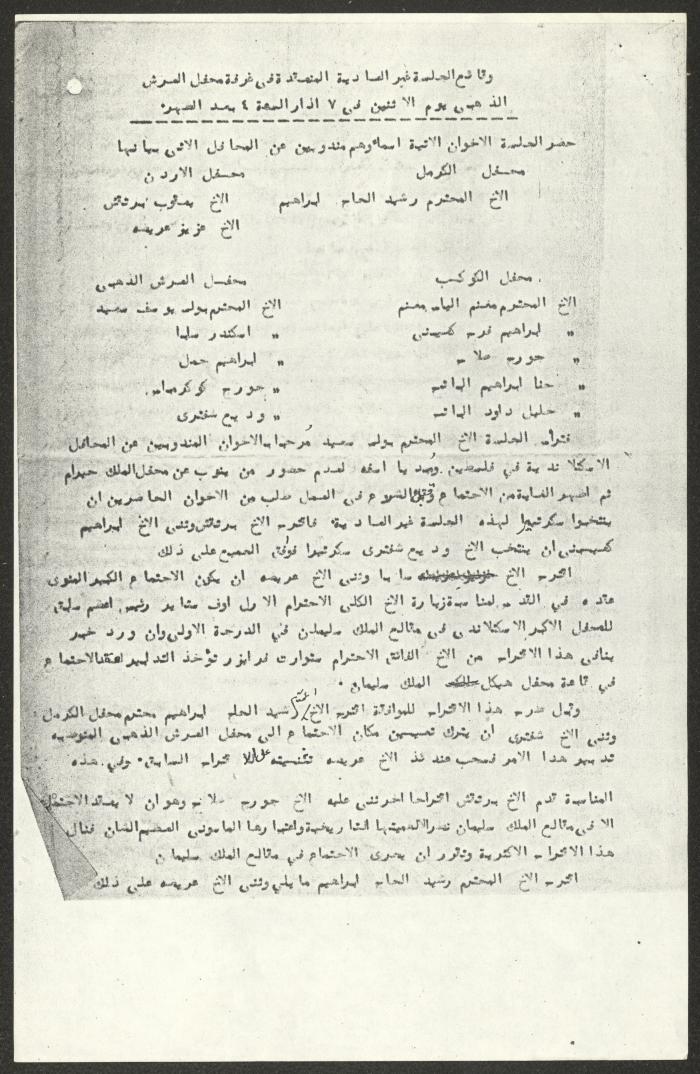 وقائع الجلسة غير العادية المنعقدة في غرفة محفل العرش
الذهبي يوم الاثنين في ٧ اذار الساعة ٤ بعد الظهر.
حضر الجلسة الاخوان الاتية اسماؤهم مندوبين عن المحافل الاتي بيانها
محفل الكرمل محفل الاردن
الاخ المحترم رشيد الحاج ابراهيم الاخ يعقوب برتقش
الاخ عزيز عريضه
محفل الكوكب محفل العرش الذهبي
الاخ المحترم مغنم الياس مغنم الاخ المحترم بولس يوسف سعيد
" ابراهيم فرح كعيبني " اسكندر سابا
" جورج صلاح " ابراهيم جمل
" حنا ابراهيم الباشه " جورج
" خليل داود الباشه " وديع شفتري
فتراس الجلسة الاخ المحترم بولس سعيد مرحبا بالاخوان المندوبين عن المحافل
الاسكتلاندية في فلسطين مبديا اسفه لعدم حضور من ينوب عن محفل الملك حيرام
ثم اظهر الغاية من الاجتماع وقبل الشروع في العمل طلب من الاخوان الحاضرين ان
ينتخبوا سكرتيرا لهذه الجلسة غير العادية. فاقترح الاخ برتقش وثنى الاخ ابراهيم
كعيبني ان ينتخب الاخ وديع شفتري سكرتيرا فوافق الجميع على ذلك
اقترح الاخ سابا وثنى الاخ عريضه ان يكون الاجتماع الكبير المنوي
عقده في القدس لمناسبة زيارة الاخ الكلي الاحترام الاول اوف ستاير رئيس اعظم سابق
للمحفل الاكبر الاسكتلاندي في مقالع الملك سليمان في الدرجة الاولى وان ورد خبر
ينافي هذا الاقتراح من الاخ الفائق الاحترام ستوارت فرايزر تؤخذ التدابير لعقد الاجتماع
في قاعة محفل هيكل الملك سليمان.
وقبل طرح هذا الاقتراح للموافقة اقترح الاخ المحترم رشيد الحاج ابراهيم محترم محفل الكرمل
وثنى الاخ شفتري ان يترك تعيين مكان الاجتماع الى محفل العرش الذهبي المنوط به
تدبير هذا الامر فسحب عندئذ الاخ عريضه تثنيته على الاقتراح السابق. وفي هذه
المناسبة قدم الاخ برتقش اقتراحا اخر ثنى عليه الاخ جورج صلاح وهو ان لا يعقد الاجتماع
الا في مقالع الملك سليمان نظرا لاهميتها التاريخية واعتبارها الماسوني العظيم الشان فنال
هذا الاقتراح الاكثرية وتقرر ان يجري الاجتماع في مقالع الملك سليمان
اقترح الاخ المحترم رشيد الحاج ابراهيم ما يلي وثنى الاخ عريضه على ذلك